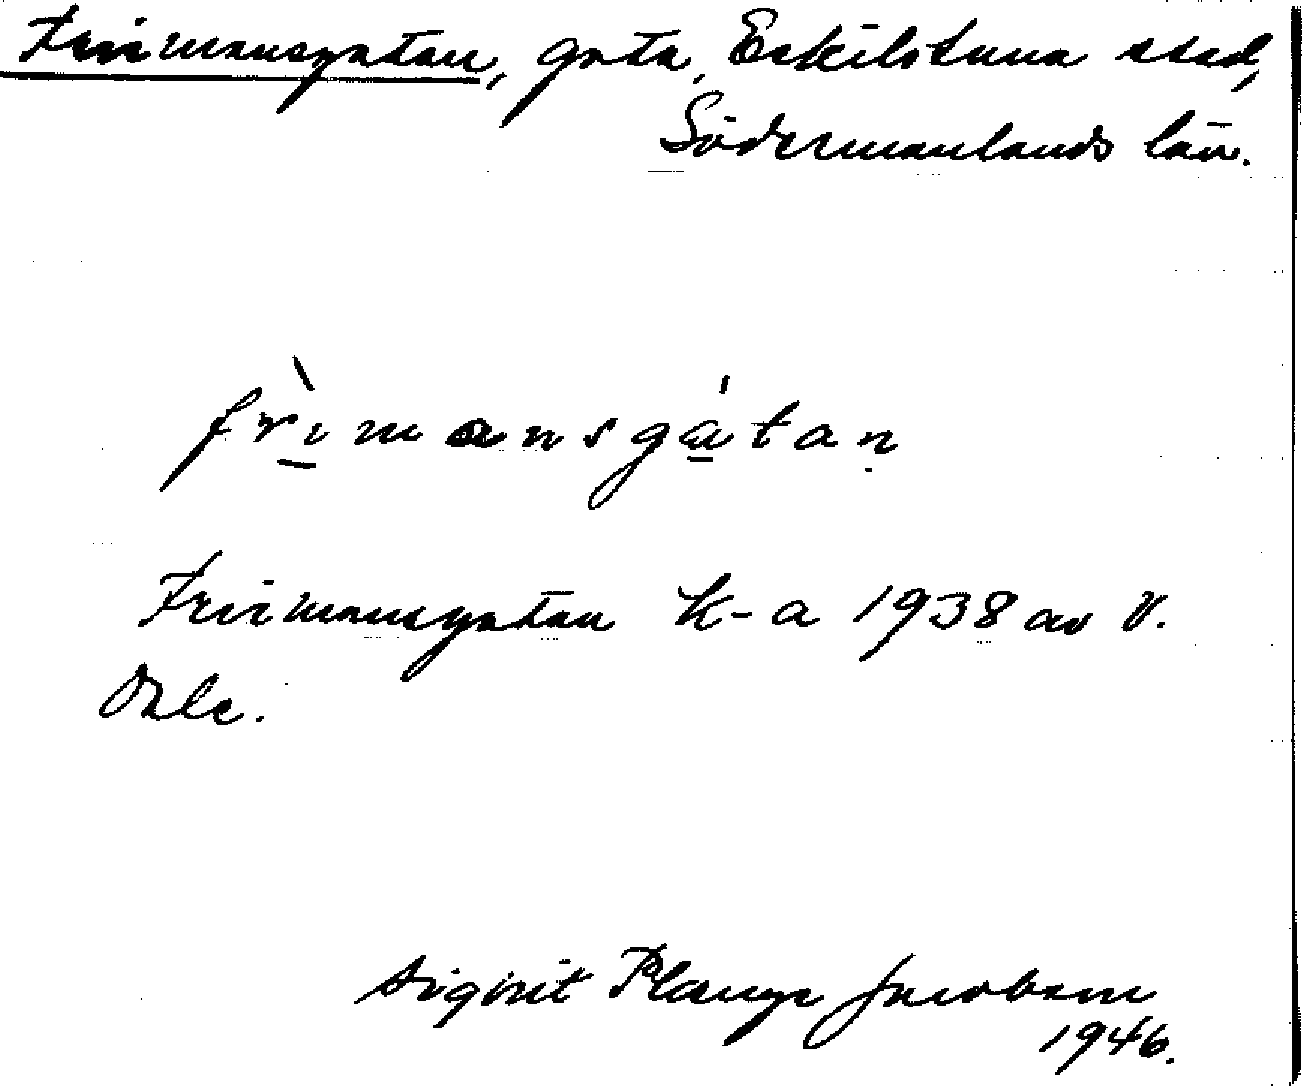 Frimansgatan, gata, Eskilstuna stad,
Södermanlands län.
frìmansgátaṇ
Frimansgatan K-a 1938 av V.
Ohle.
Sigurit Plange Jacobson
1946.